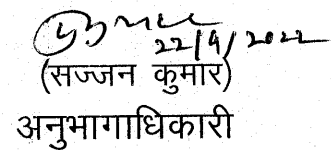 22/9/2022
(सज्जन कुमार)
अनुभागाधिकारी